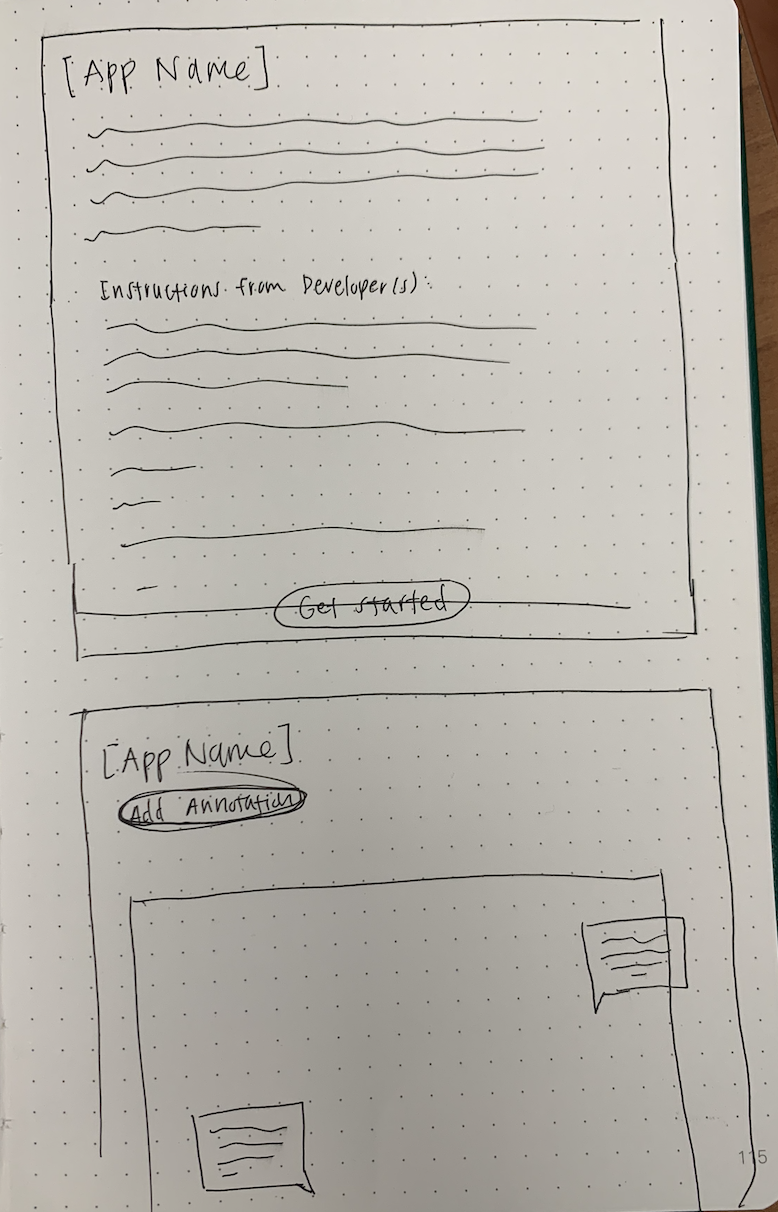 [App Name]
Instructions from Developer(s):
Get started
[App Name]
Add Annotation
115